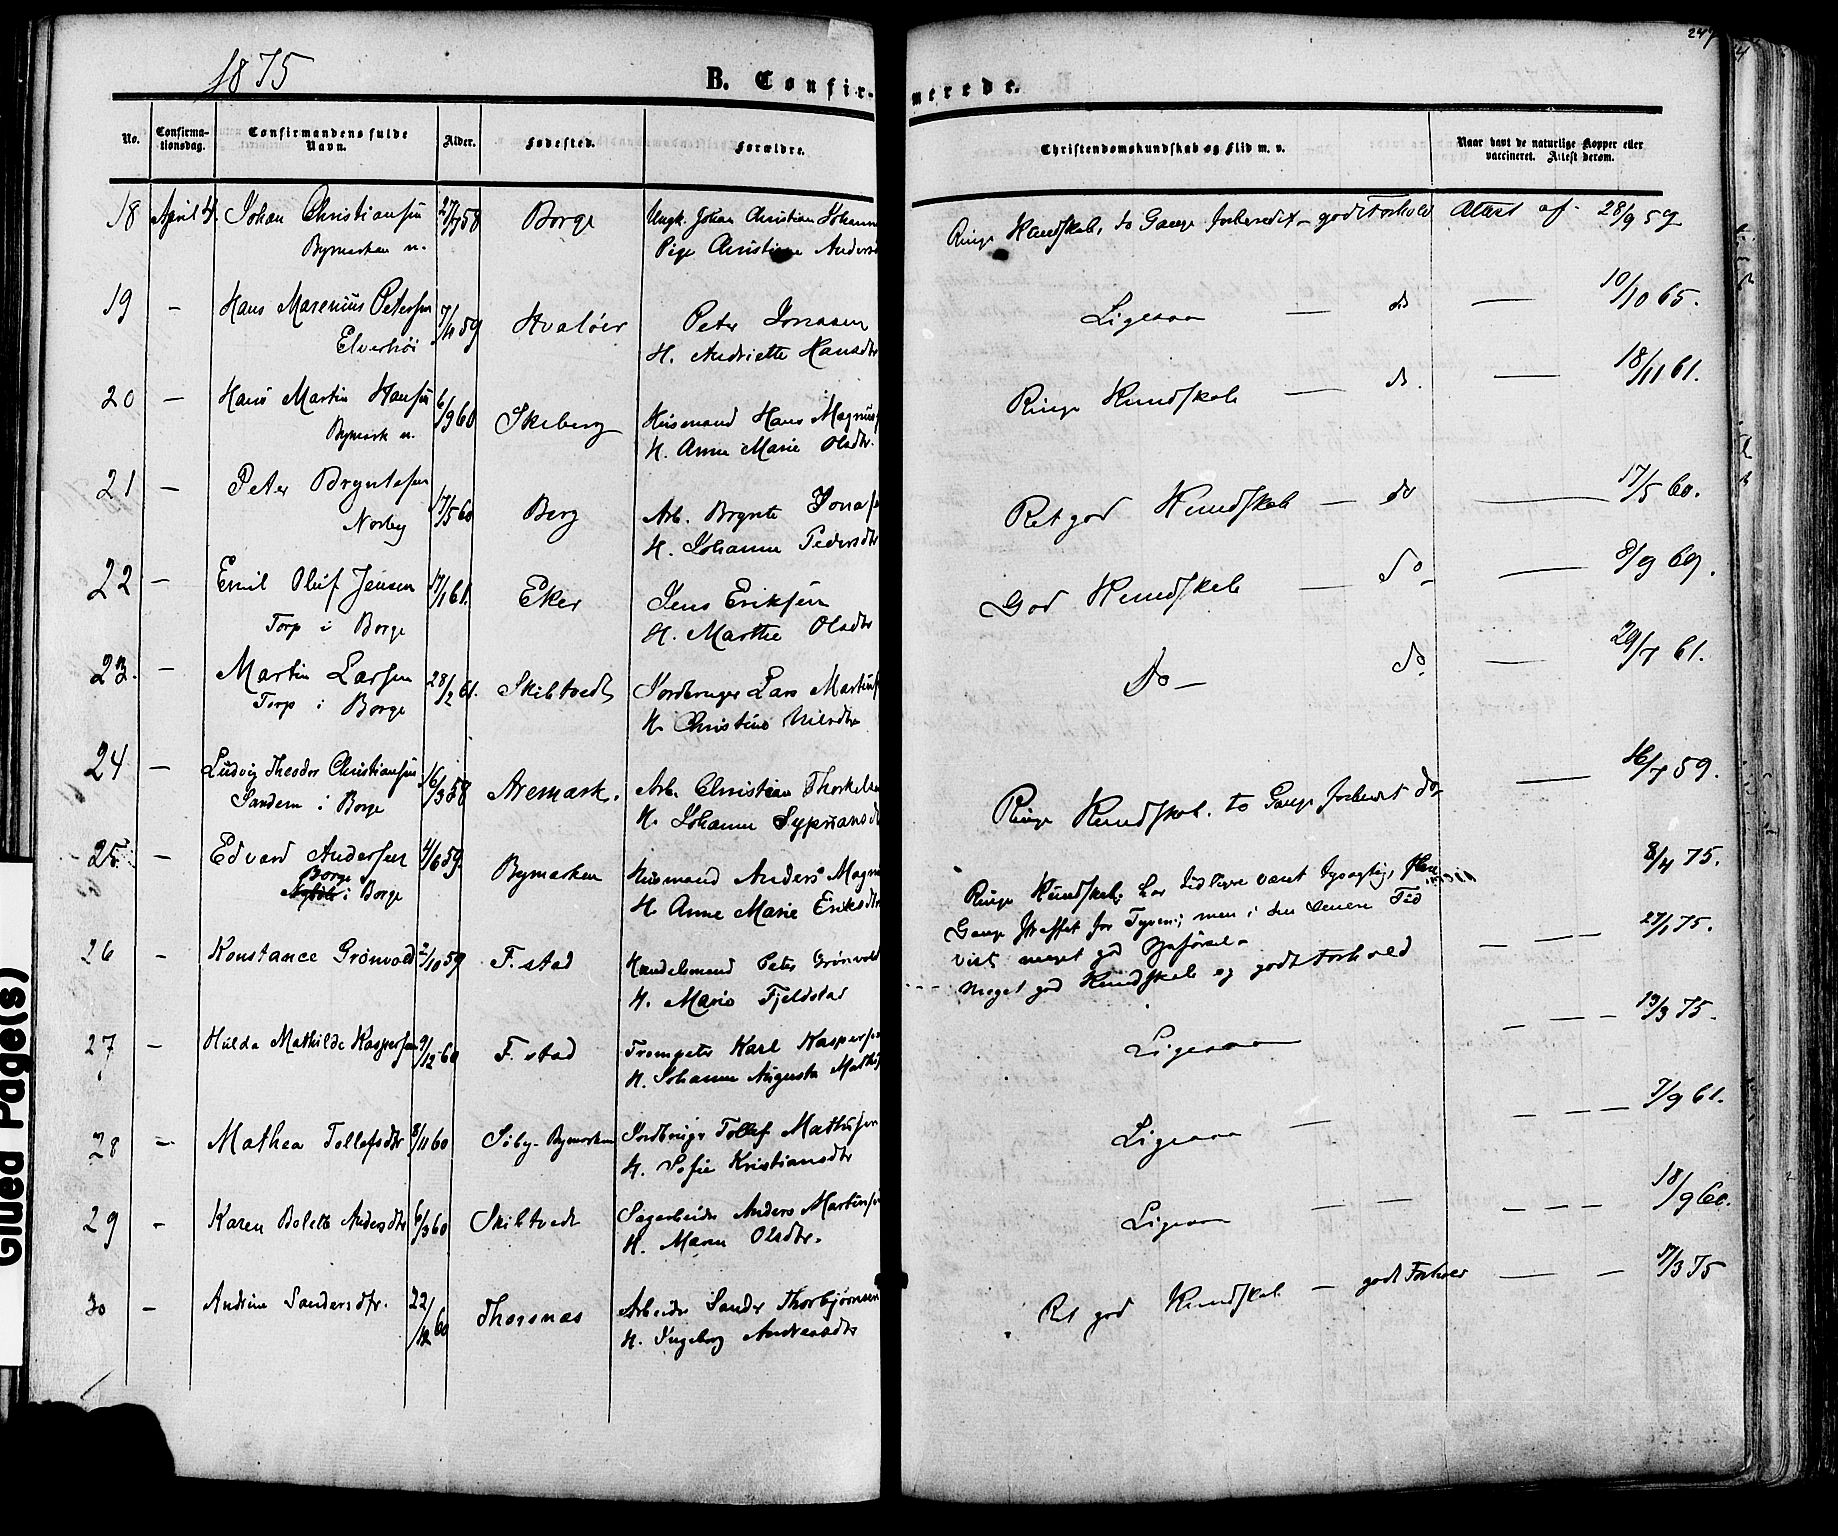 1875
B. Confir-
merede.
249
No.
Confirma-
tionsdag.
Confirmandens fulde
Navn.
Alder.
Fødested.
Forældre.
Christendomskundskab og Flid m. v.
Naar havt de naturlige Kopper eller
vaccineret. Attest derom.
18 April 4. Johan Christiansen 27/7 58 Borge Ungk. Johan Christian Johann Ringe Kundskab, to Gange forberedt – godt Forhold Attest af 28/9 59
Bymarken n. Pige Christiane Anders
19 – Hans Marenius Petersen 7/11 59 Hvaløer Peter Jonasen Ligesaa – do – 10/10 65.
Elverhøi H. Andriette Hansdtr
20 – Hans Martin Hansen 6/9 60 Skeberg Husmand Hans Magnus Ringe Kundskab – do. – 18/11 61.
Bymark n. H. Anne Marie Olsdtr.
21 – Peter Bryntesen 17/5 60 Berg Arb. Brynte Jonas Ret god Kundskab – do – 17/5 60.
Norby H. Johanne Pedersdtr
22 – Emil Oluf Jensen 17/1 61. Eker Jens Eriksen God Kundskab – do – 8/9 69.
Torp i Borge H. Marthe Olsdtr
23. – Martin Larsen 28/2 61. Skibtvedt Jordbruger Lars Martins Do – do – 29/7 61.
Torp i Borge H. Christine Nilsdtr
24 – Ludvig Theodor Christiansen 16/3 58 Aremark. Arb. Christian Thorkels Ringe Kundskab. to Gange forberedt do – 16/7 59.
Sandem i Borge H. Johanne Sypriansd
25. – Edvard Andersen 4/6 59. Bymarken Husmand Anders Magn Ringe Kundskab; har tidligere været 8/4 75.
Borge
i Borge H. Anne Marie Eriksdtr Gange straffet for Tyveri; men i den senere Tid
vist meget god Opførsel –
26 – Konstance Grønvold 2/10 59 F. stad Handelsmand Peter Grønvold Meget god Kundskab og godt Forhold – – – 27/1 75.
H. Marie Fjeldstad
27 – Hulda Mathilde Kaspersen 9/12 60 F. stad Trompeter Karl Kaspersen Ligesaa – – – 13/3 75.
H. Johanne Augusta Math
28 – Mathea Tollefsdtr 8/11 60 Søby-Bymarken Jordbruger Tollef Mathisen Ligesaa – – – – 7/9 61.
H. Sofie Kristiansdtr
29 – Karen Bolette Andersdtr 6/3 60 Skibtvedt Sagarbeider Anders Martinsen Ligesaa – – – – – 18/9 60.
H. Maren Olsdtr.
30 – Andrine Sandersdtr. 22/12 60 Thorsnæs Arbeider Sander Thorbjørnsen Ret god Kundskab – godt Forhold – – 17/3 75
H. Ingeborg Andreasdtr
Glued Page(s)